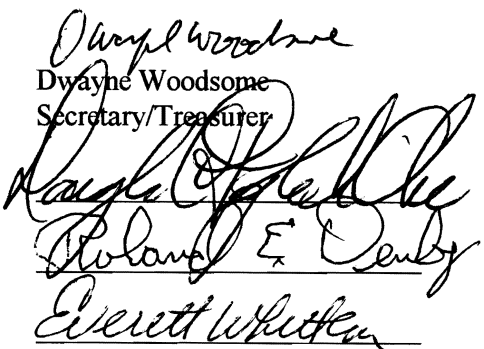 Dwayne Woodsome
Dwayne Woodsome
Secretary/Treasurer
Douglas
Roland E Denby
Everett Whitten